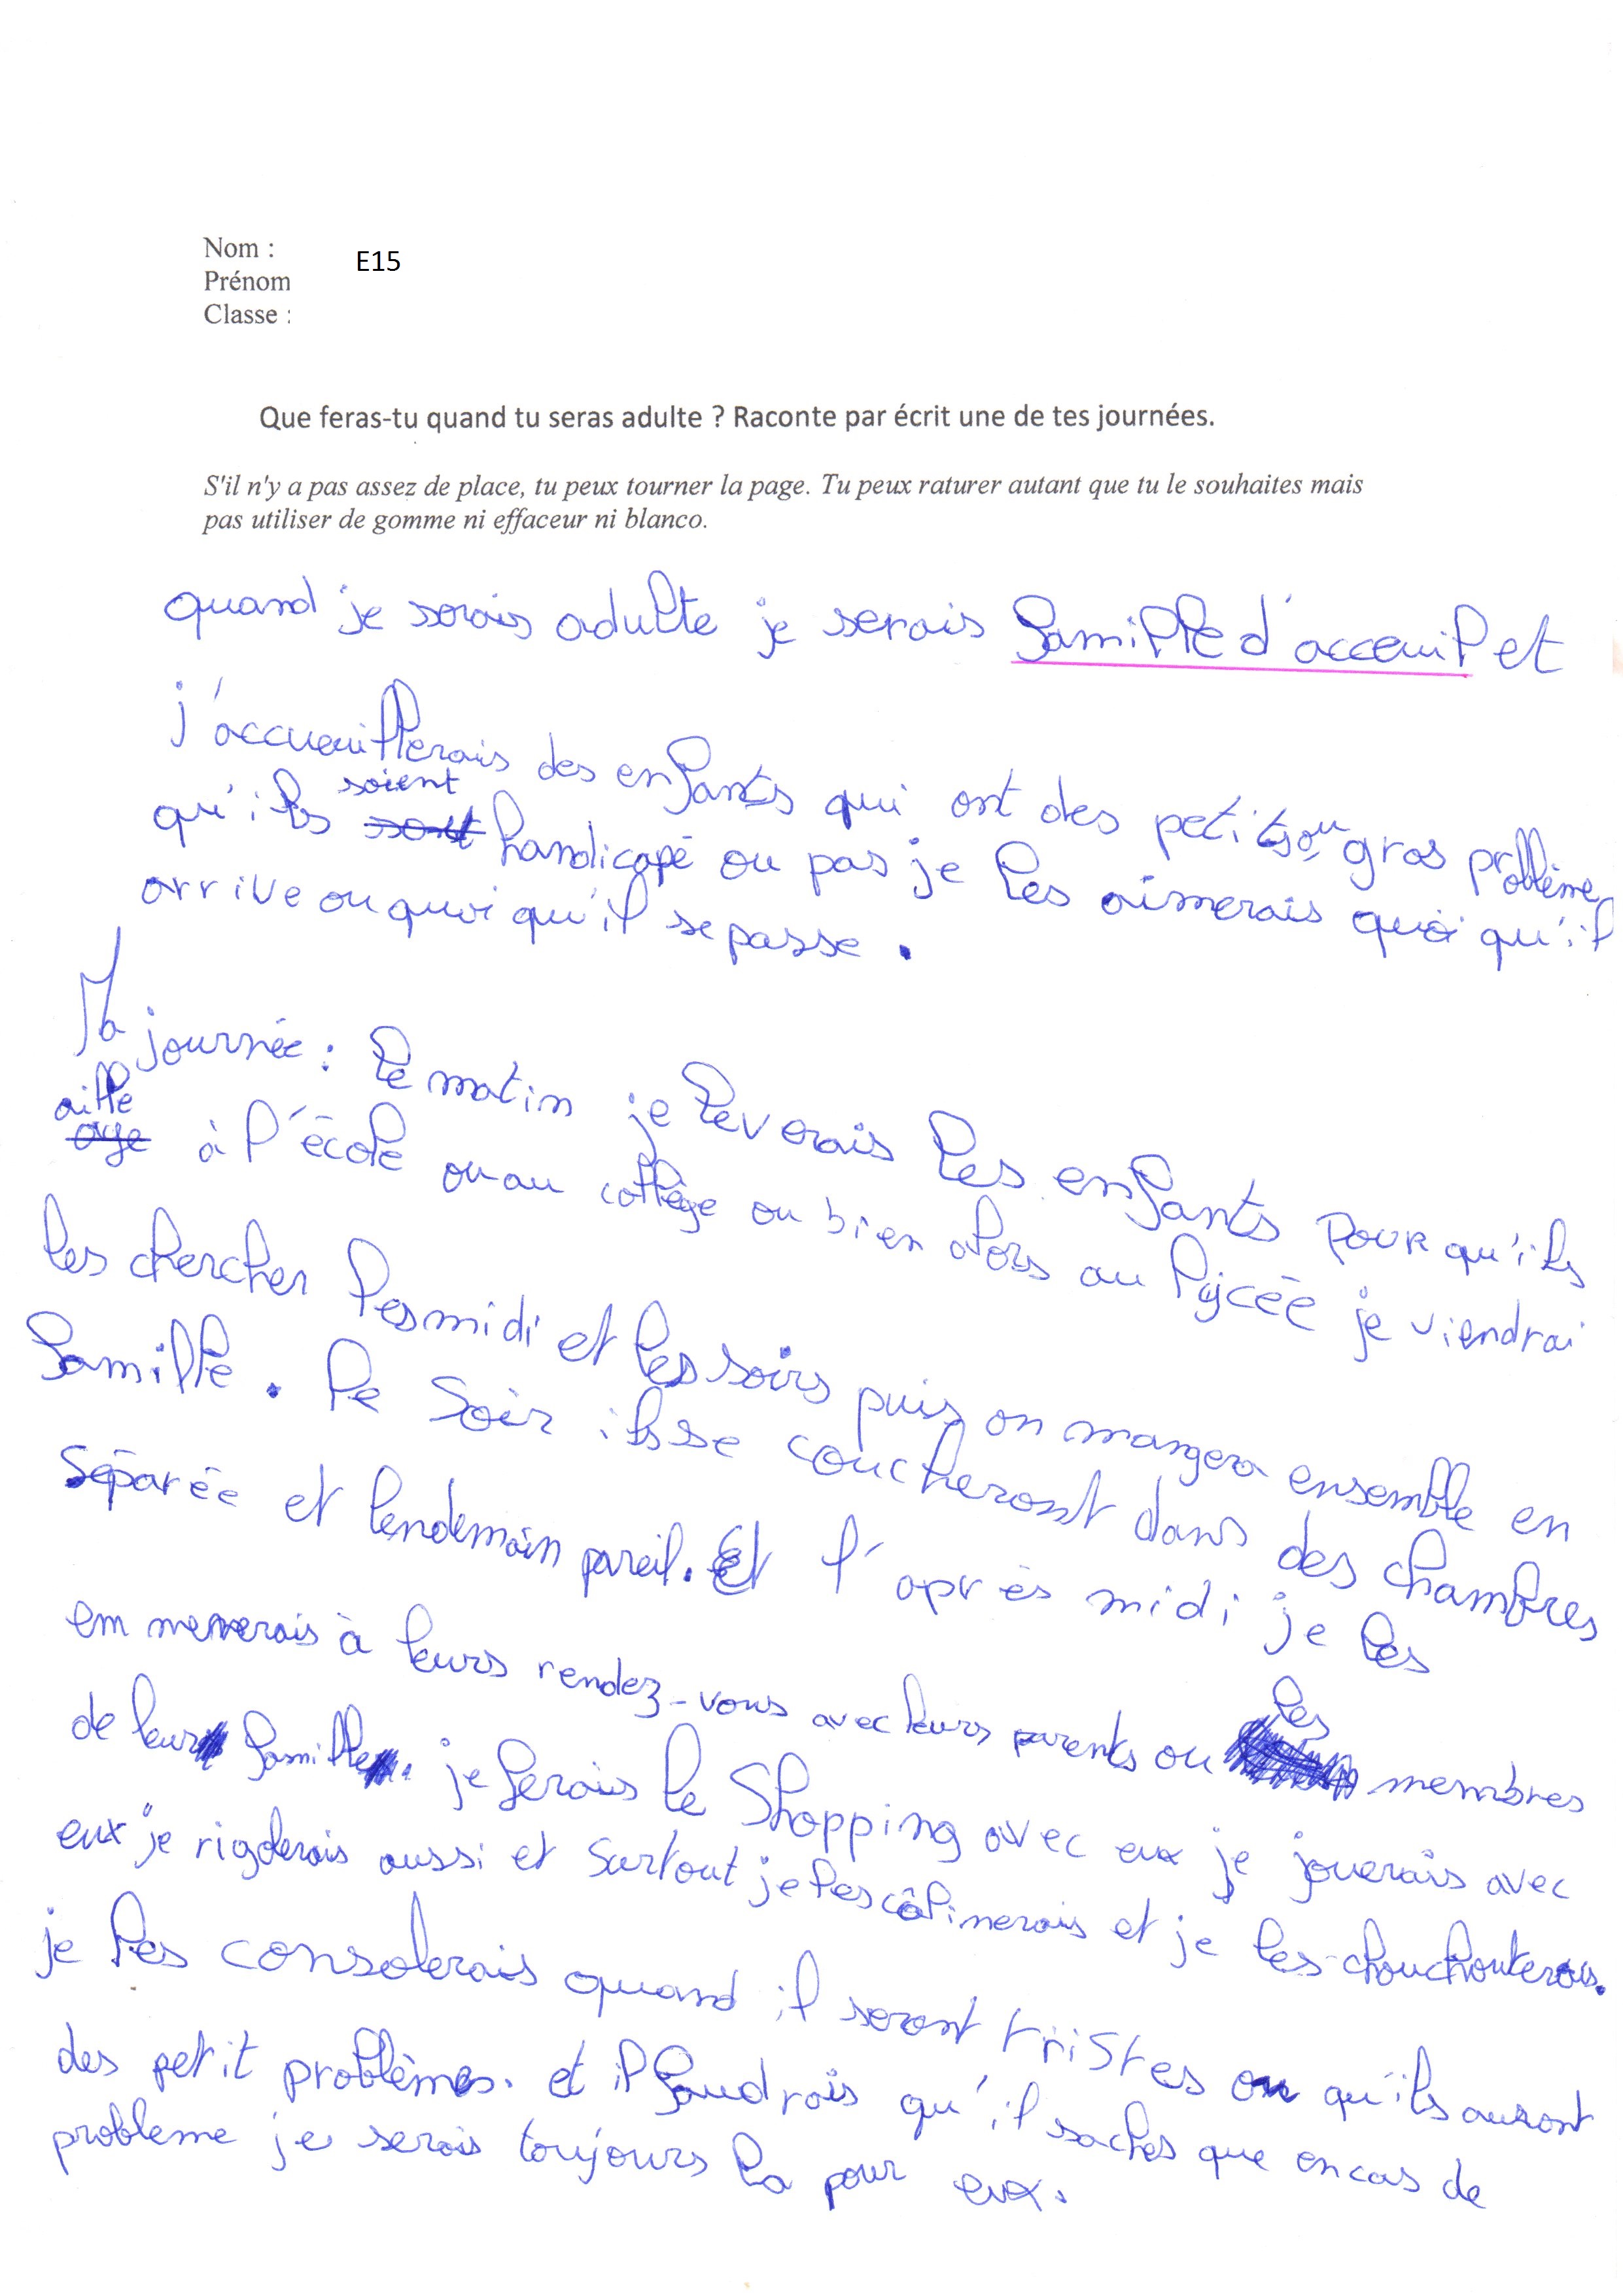 Nom :
E15
Prénom
Classe :
Que feras-tu quand tu seras adulte ? Raconte par écrit une de tes journées.
S'il n'y a pas assez de place, tu peux tourner la page. Tu peux raturer autant que tu le souhaites mais
pas utiliser de gomme ni effaceur ni blanco.
quand je serais adulte je serais famille d'acceuil et
j'accueuillerais des enfants qui ont des petits ou gros problème
qu'ils sont soient handicapé ou pas je les aimerais quoi qu'il
arrive ou quoi qu'il se passe.
Ma journée : le matin je leverais les enfants pour qu'ils
aye aille à l'école ou au collège ou bien alors au lycée je viendrai
les chercher les midi et les soirs puis on mangera ensemble en
famille. le soir ils se coucheront dans des chambres
séparée et lendemain pareil. Et l'après midi je les
emmenerais à leurs rendez-vous avec leurs parents ou les membres
de leur famille. je ferais le shopping avec eux je jouerais avec
eux je rigolerais aussi et surtout je les câlinerais et je les chouchouterais.
je les consolerais quand il seront tristes ou qu'ils auront
des petit problèmes. et il faudrais qu'il saches que en cas de
probleme je serais toujours la pour eux.